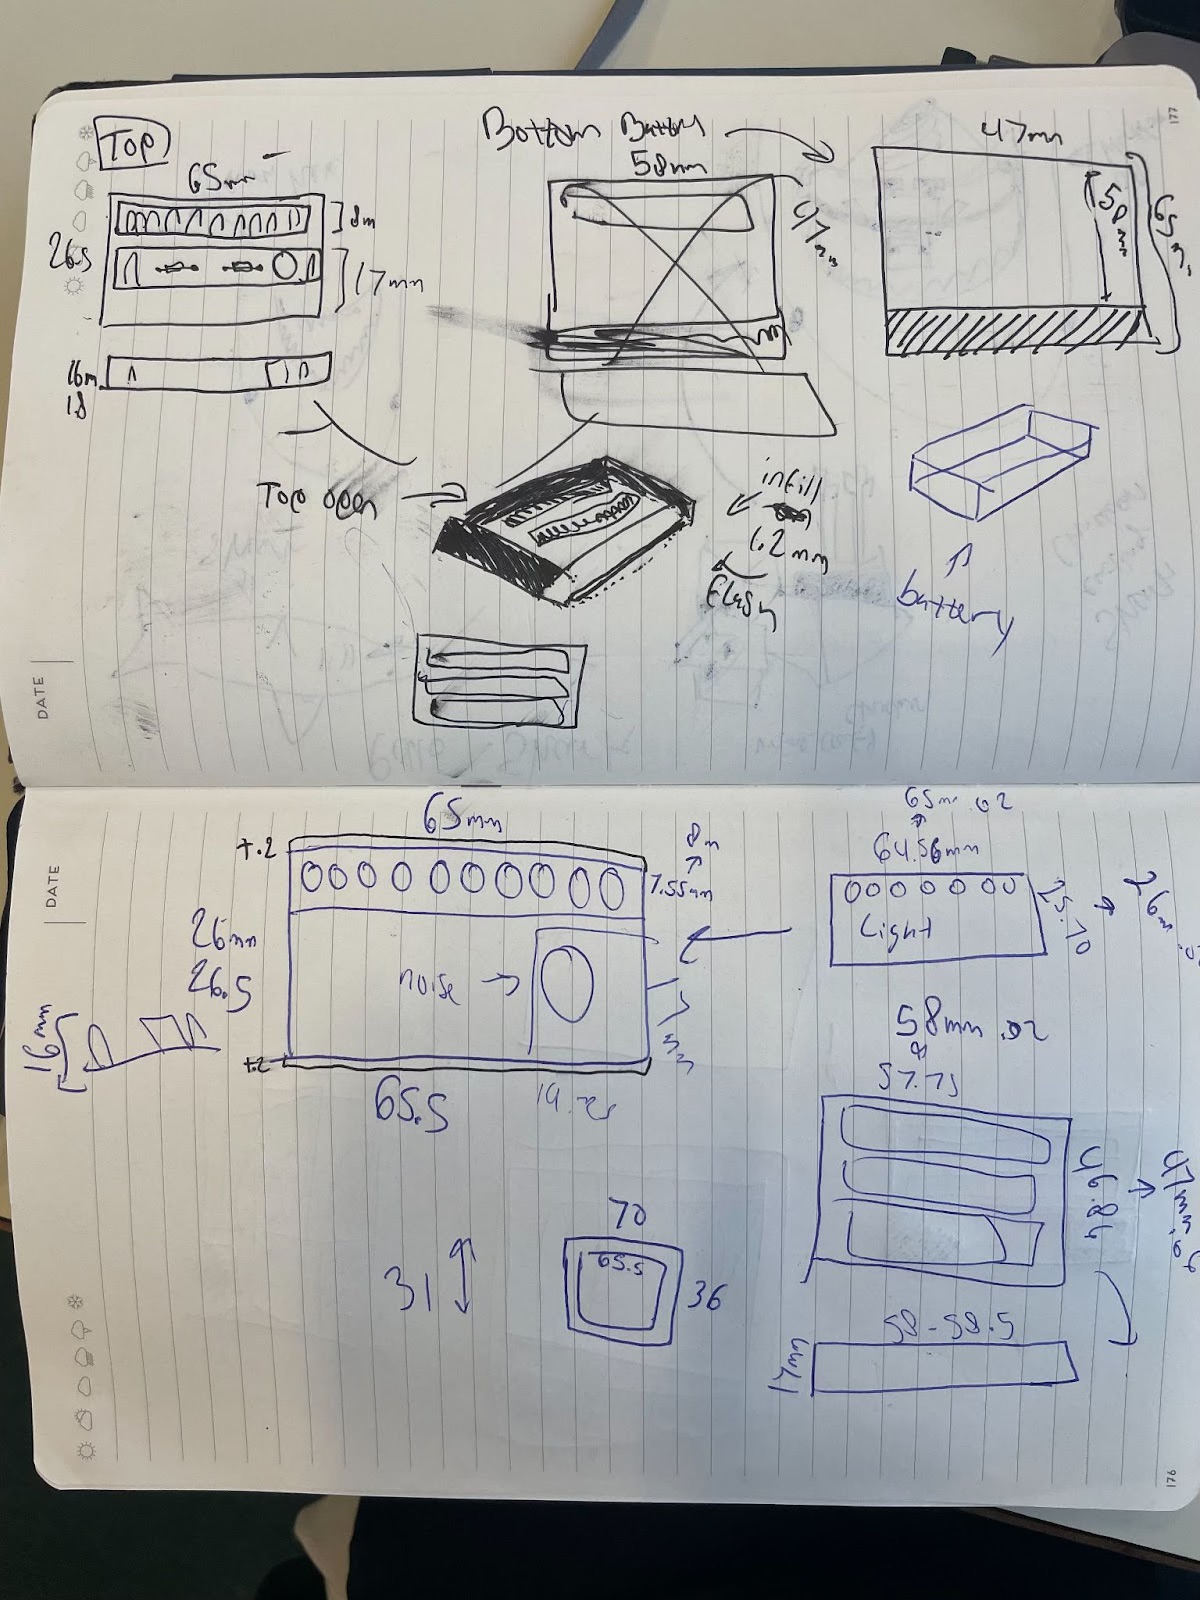 177
Top
65mm
8m
26.5
17mm
16m
18
Bottom Battery
58mm
47mm
47mm
58mm
65m
Top open
infill
1.2mm
flash
battery
DATE
DATE
65mm
+.2
8m
7.55mm
26mm
26.5
noise
16mm
+.2
65.5
65mm .02
64.56mm
25.70
26m
Light
58mm .02
57.75
46.84
47mm
58-58.5
17mm
70
65.5
36
31
176